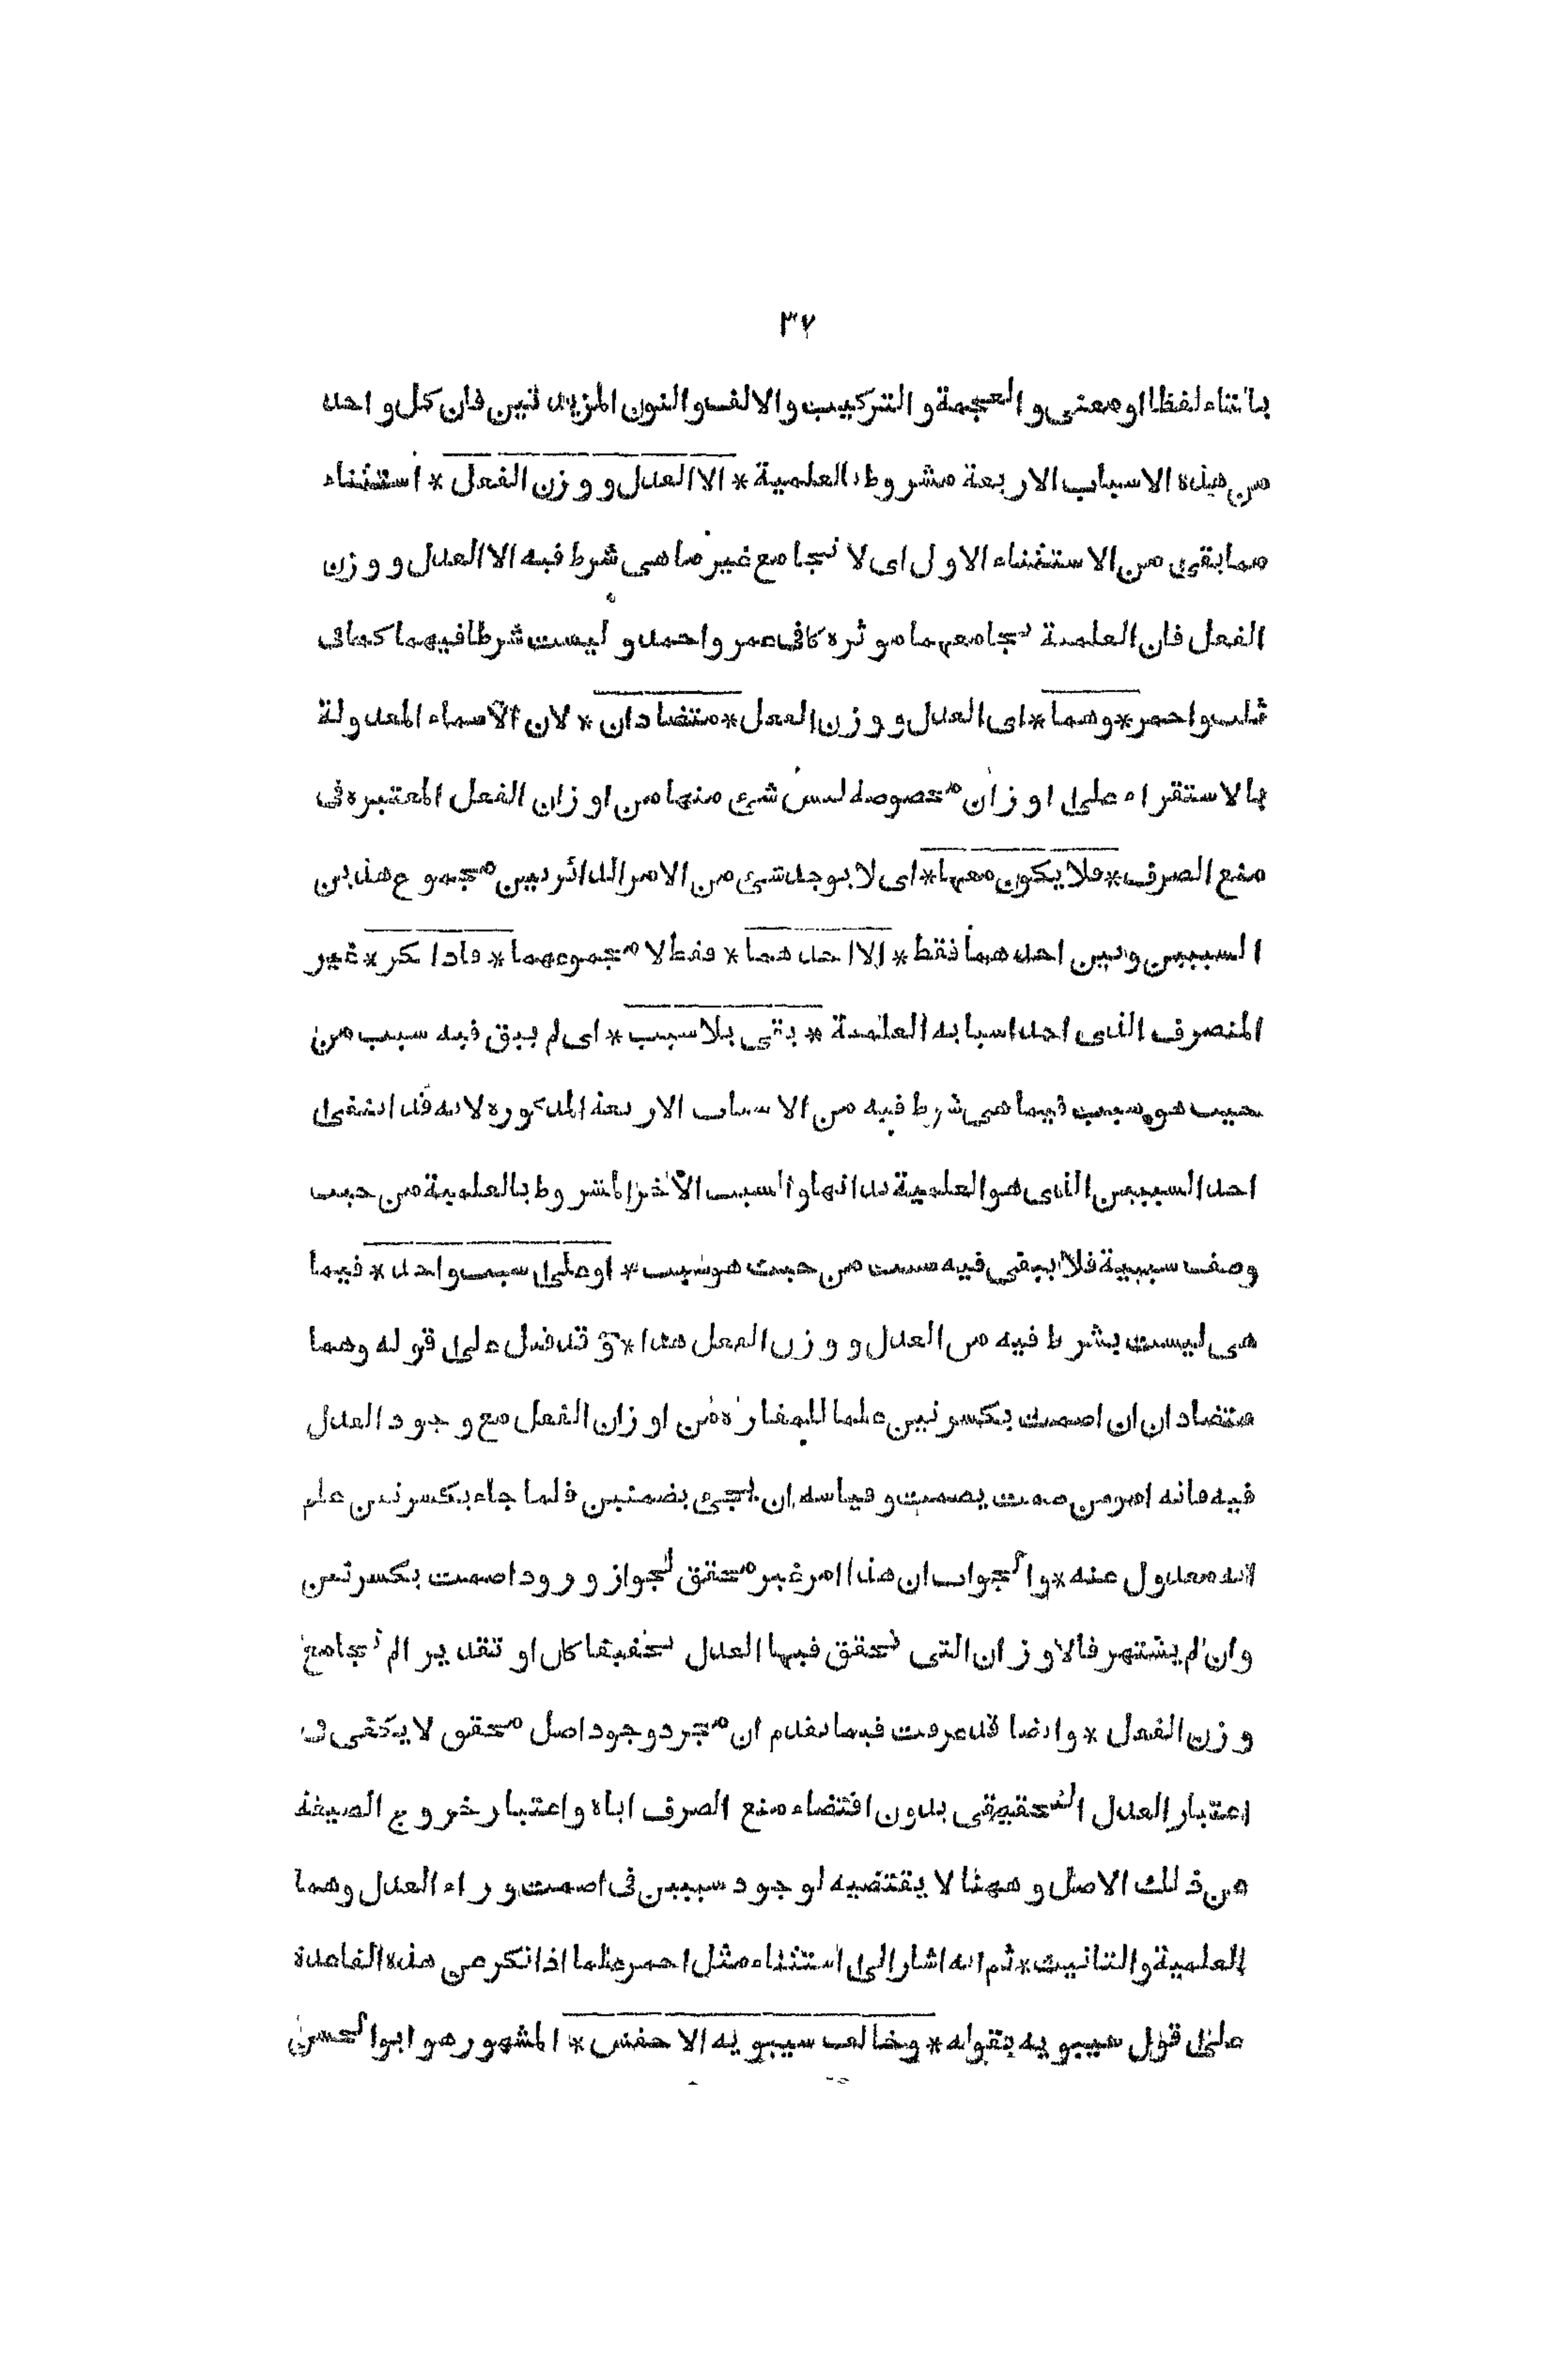 ٣٧
بالتاء لفظا او معنى و العجمة و التركيب و الالف و النون المزيد تين فان كل و احد
من هذه الاسباب الاربعة مشروط بالعلمية * الا العدل و وزن الفعل * استثناء
مما بقى من الاستثناء الاول اى لا تجامع غير ما هى شرط فيه الا العدل و وزن
الفعل فان العلمية تجامعهما موثره كما فى عمر و احمد و ليست شرطا فيهما كما فى
ثلث و احمر * وهما * اى العدل و وزن الفعل * متضادان * لان الاسماء المعدولة
بالاستقراء على اوزان مخصوصة ليس شئ منها من اوزان الفعل المعتبره فى
منع الصرف * فلا يكون معها * اى لا يوجد شئ من الامر الدائر بين مجموع هذين
السببين وبين احدهما فقط * الا احدهما * فقط لا مجموعهما * فاذا نكر * غير
المنصرف الذى احد اسبابه العلمية * بقى بلا سبب * اى لم يبق فيه سبب من
حيث هو سبب فيما هى شرط فيه من الاسباب الاربعة المذكوره لانه قد انتفى
احد السببين الذى هو العلمية بذاتها و السبب الآخر المشروط بالعلمية من حيث
وصف سببية فلا يبقى فيه سبب من حيث هو سبب * او على سبب واحد * فيما
هى ليست بشرط فيه من العدل و وزن الفعل هذا * و قد قيل على قوله وهما
متضادان ان اصمت بكسرتين علما للمفازه من اوزان الفعل مع وجود العدل
فيه فانه امر من صمت يصمت و قياسه ان يجئ بضمتين فلما جاء بكسرتين علم
انه معدول عنه * و الجواب ان هذا امر غير محقق لجواز ورود اصمت بكسرتين
وان لم يشتهر فالاوزان التى تحقق فيها العدل تحقيقا كان او تقديرا لم تجامع
وزن الفعل * وايضا قد عرفت فيما تقدم ان مجرد وجود اصل محقق لا يكفى فى
اعتبار العدل التحقيقى بدون اقتضاء منع الصرف اياه و اعتبار خروج الصيغة
من ذلك الاصل و ههنا لا يقتضيه لوجود سببين فى اصمت وراء العدل وهما
العلمية و التانيث * ثم انه اشار الى استثناء مثل احمر علما اذا نكر عن هذه القاعدة
على قول سيبويه بقوله * وخالف سيبويه الاخفش * المشهور هو ابو الحسن